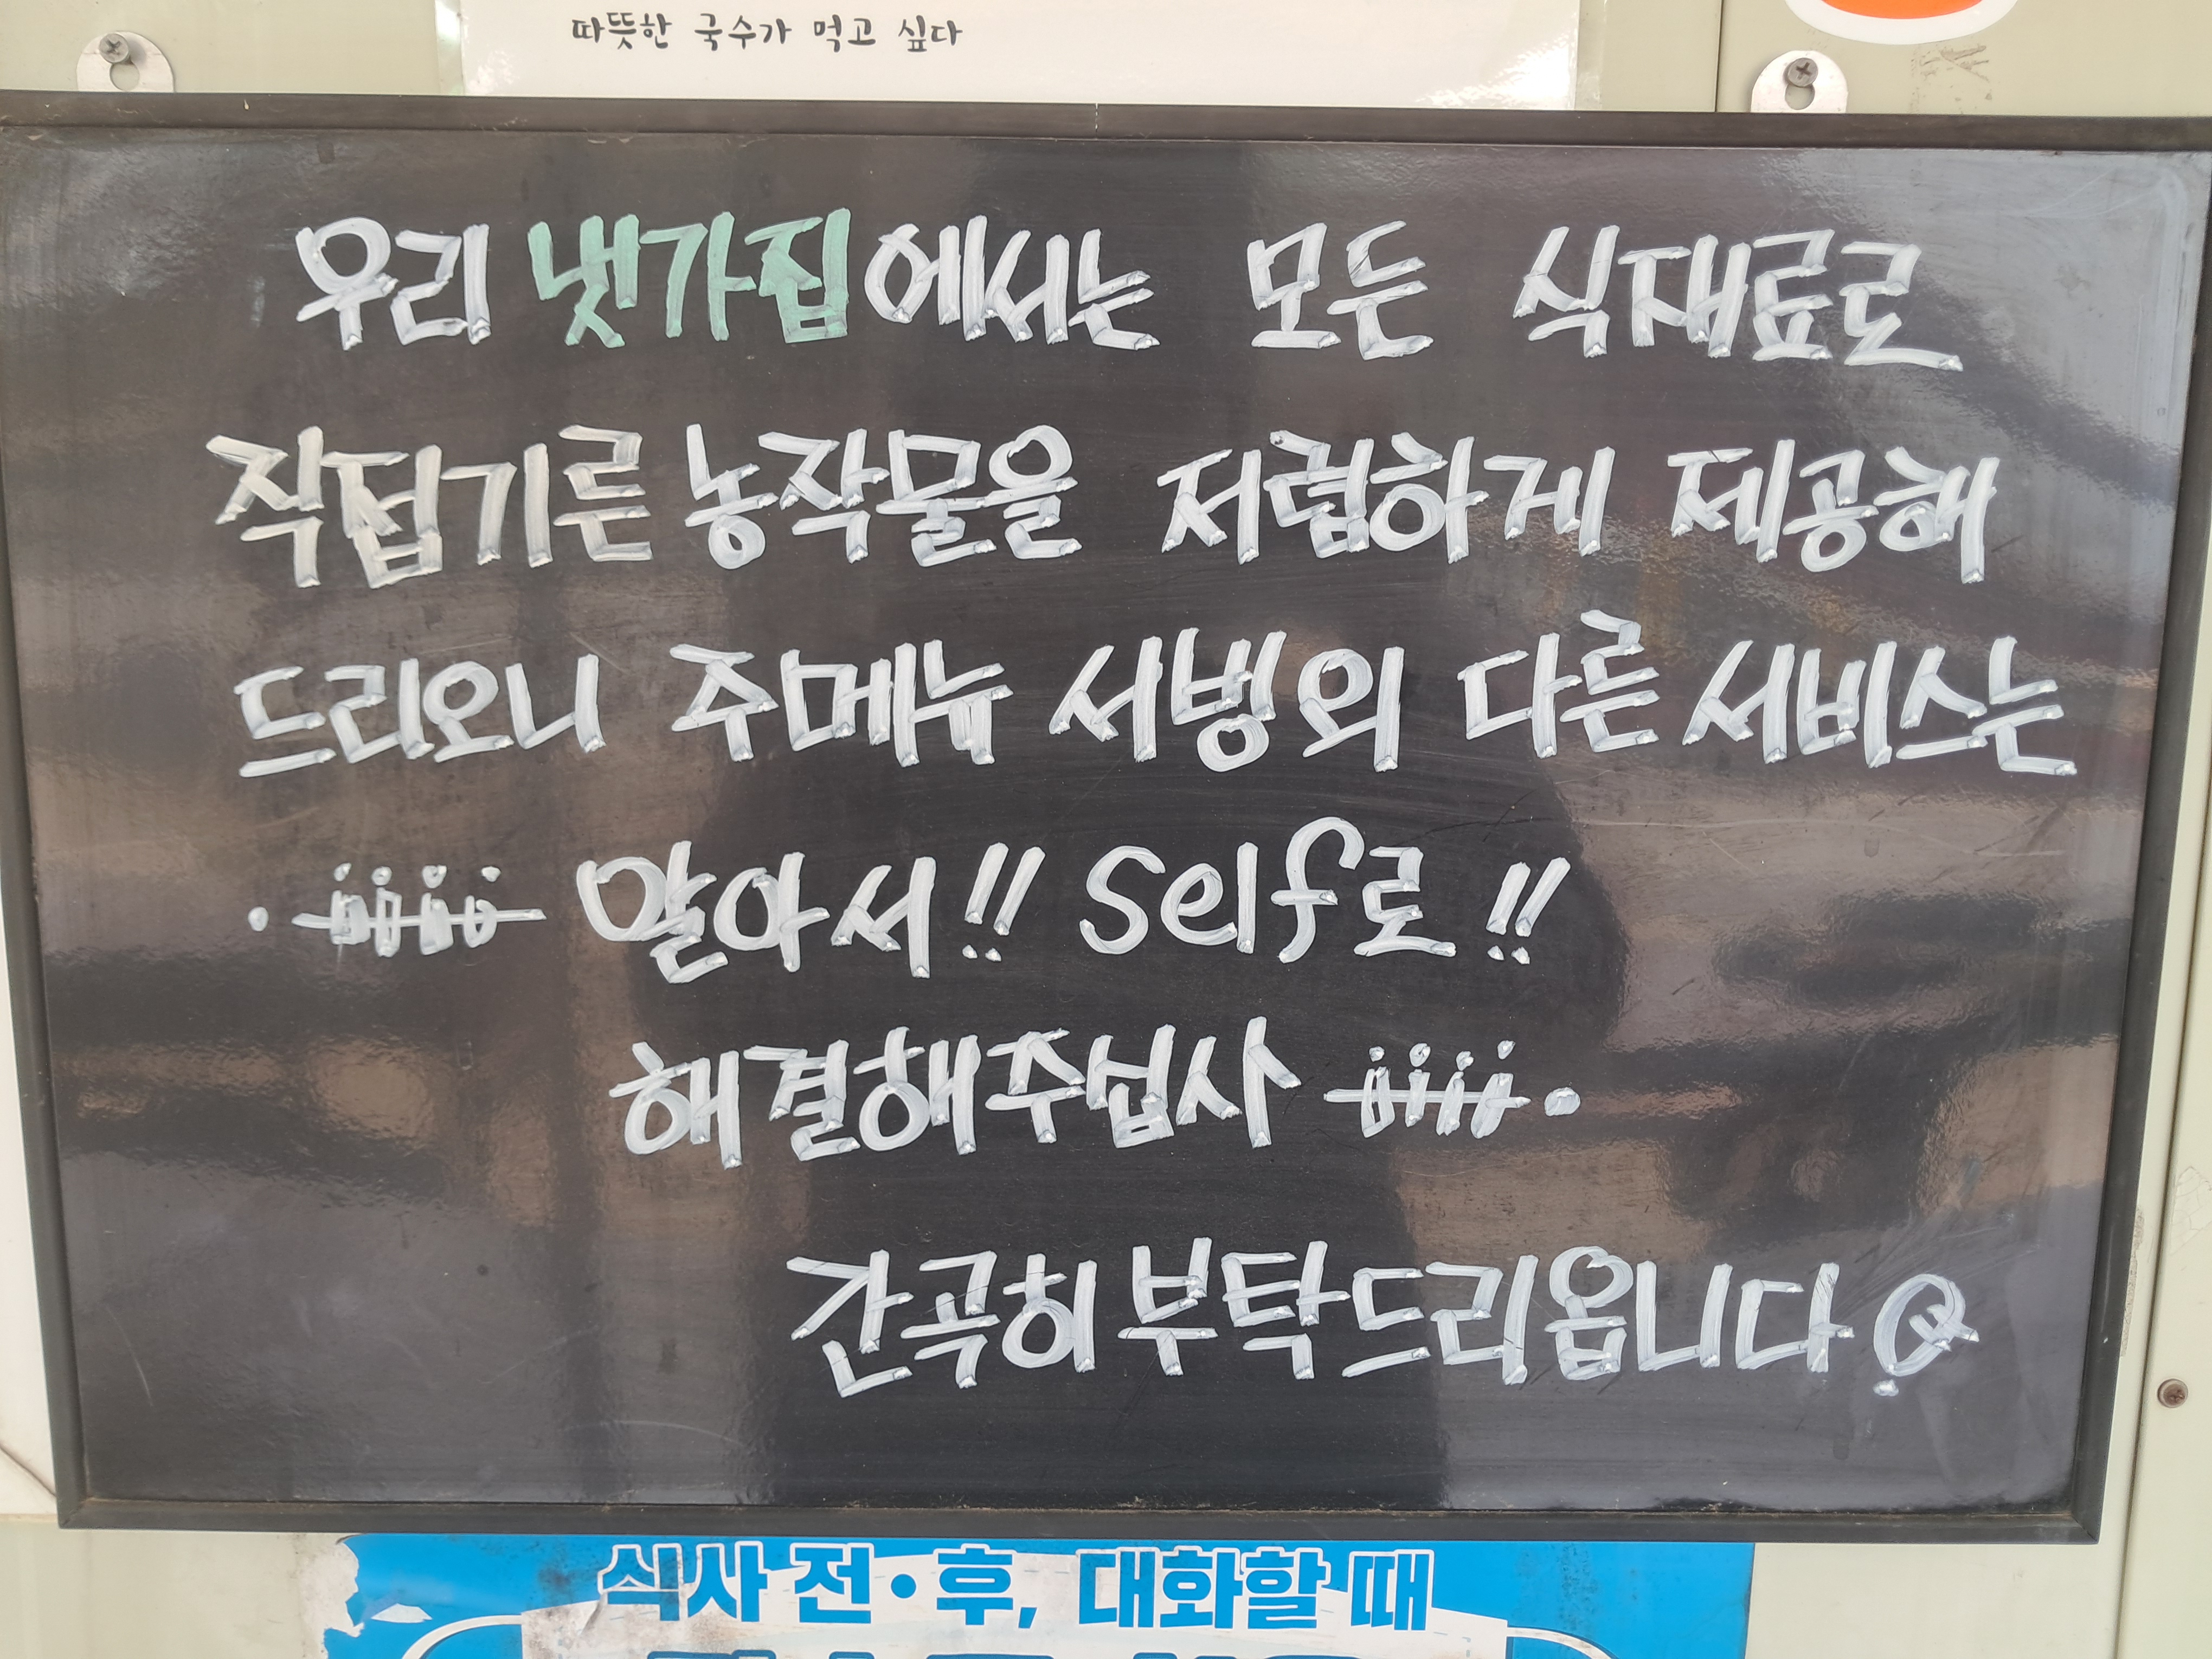 따뜻한 국수가 먹고 싶다
우리 냇가집에서는 모든 식재료로
직접기른 농작물을 저렴하게 제공해
드리오니 주메뉴 서빙외 다른 서비스는
알아서!! self로!!
해결해주섭사
간곡히부탁드리옵니다
식사 전·후, 대화할 때